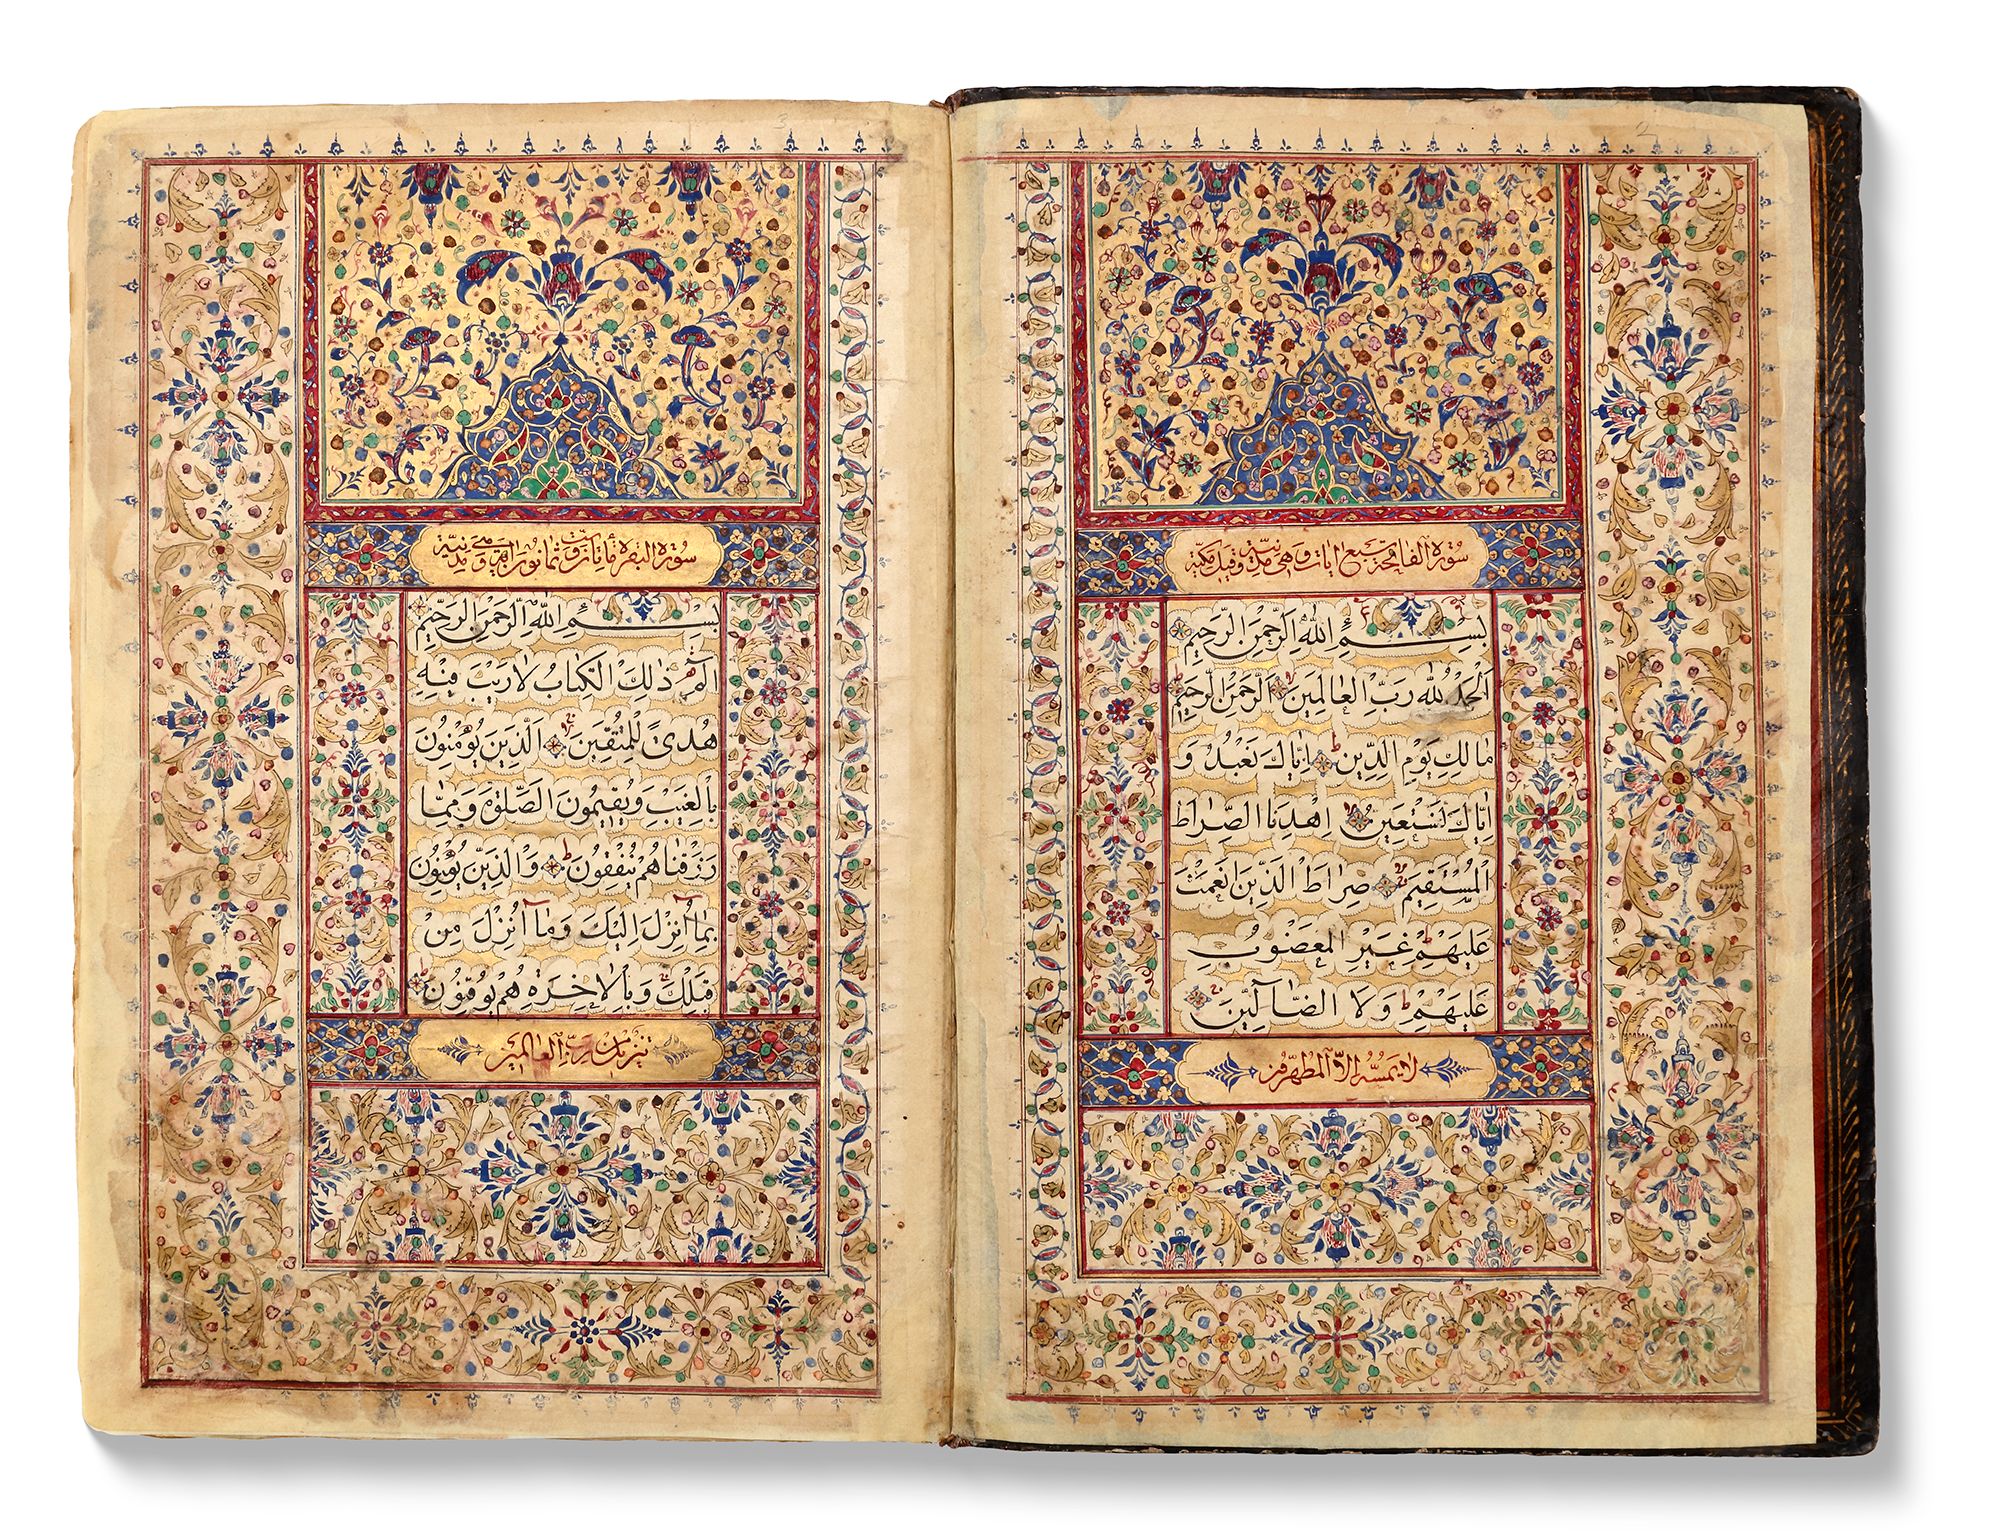 سُورة الفاتحة سبع ايات وهى مدنية وقيل مكية
بِسْمِ اللّٰهِ الرَّحْمٰنِ الرَّحِيْمِ
اَلْحَمْدُ لِلّٰهِ رَبِّ الْعَالَمِيْنَ اَلرَّحْمٰنِ الرَّحِيْمِ
مَالِكِ يَوْمِ الدِّيْنِ اِيَّاكَ نَعْبُدُ وَ
اِيَّاكَ نَسْتَعِيْنُ اِهْدِنَا الصِّرَاطَ
الْمُسْتَقِيْمَ صِرَاطَ الَّذِيْنَ اَنْعَمْتَ
عَلَيْهِمْ غَيْرِ الْمَغْضُوْبِ
عَلَيْهِمْ وَلَا الضَّآلِّيْنَ
لا يمسُّه الاّ المطهّرون
سُورة البقره مأتان وست ثمانون مدنية
بِسْمِ اللّٰهِ الرَّحْمٰنِ الرَّحِيْمِ
الٓمٓ ذٰلِكَ الْكِتَابُ لَا رَيْبَ فِيْهِ
هُدًى لِلْمُتَّقِيْنَ اَلَّذِيْنَ يُؤْمِنُوْنَ
بِالْغَيْبِ وَيُقِيْمُوْنَ الصَّلٰوةَ وَمِمَّا
رَزَقْنَاهُمْ يُنْفِقُوْنَ وَالَّذِيْنَ يُؤْمِنُوْنَ
بِمَآ اُنْزِلَ اِلَيْكَ وَمَآ اُنْزِلَ مِنْ
قَبْلِكَ وَبِالْاٰخِرَةِ هُمْ يُوْقِنُوْنَ
تنزيل من ربّ العالمين